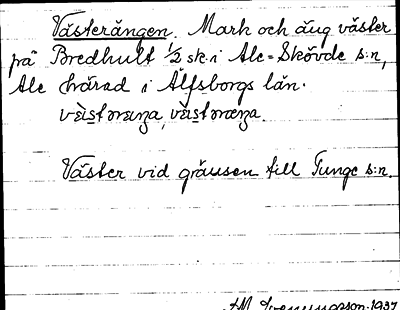 Västerängen. Mark och äng väster
på Bredhult 1/2 sk. i Ale-Skövde s:n,
Ale härad i Älfsborgs län.
Väster vid gränsen till Tunge s:n.
1937